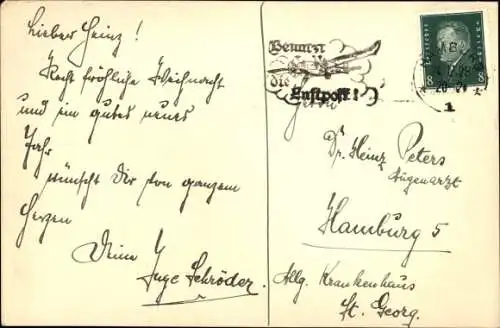 Lieber Heinz!
Recht fröhliche Weihnacht
und ein gutes neues
Jahr
wünscht Dir von ganzem
Herzen
Deine
Inge Schröder.
Benutzt
die
Luftpost!
Deutsches Reich
8 8
1
Herrn
Dr. Heinz Peters
Augenarzt
Hamburg 5
Allg. Krankenhaus
St. Georg.